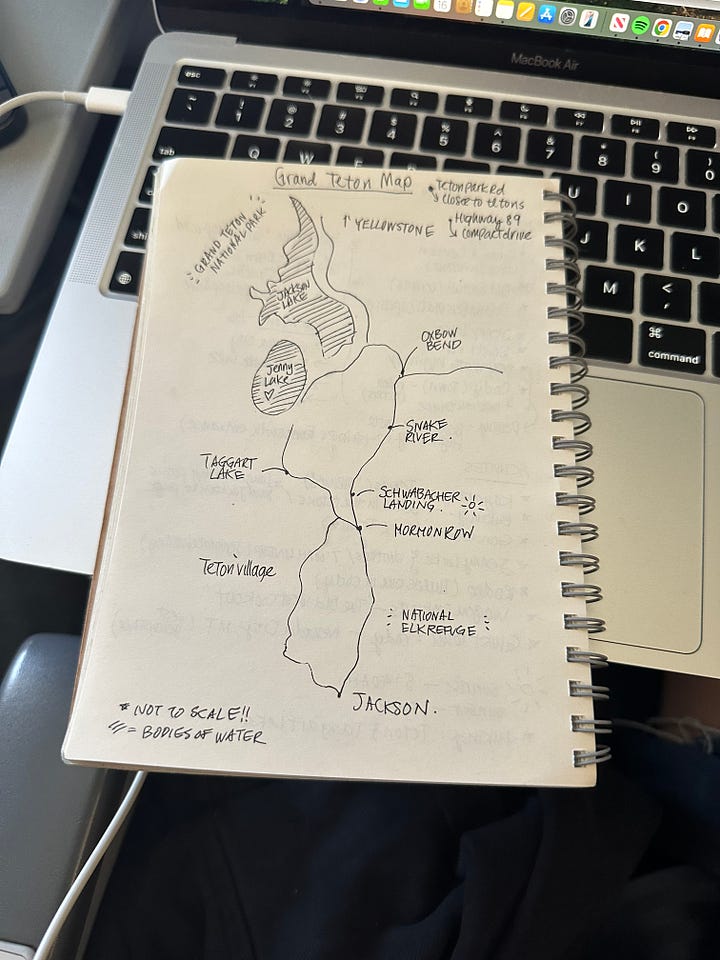 MacBook Air
esc
! 1
@ 2
# 3
$ 4
% 5
^ 6
& 7
* 8
( 9
) 0
tab
Q
W
U
I
O
J
K
L
M
< ,
⌘
command
Grand Teton Map
Teton Park Rd
closer to tetons
Highway 89
compact drive
GRAND TETON
NATIONAL PARK
↑ YELLOWSTONE
JACKSON
LAKE
OXBOW
BEND
Jenny
Lake
♡
SNAKE
RIVER.
TAGGART
LAKE
SCHWABACHER
LANDING.
MORMON ROW
Teton village
NATIONAL
ELK REFUGE
JACKSON.
* NOT TO SCALE!!
= BODIES OF WATER